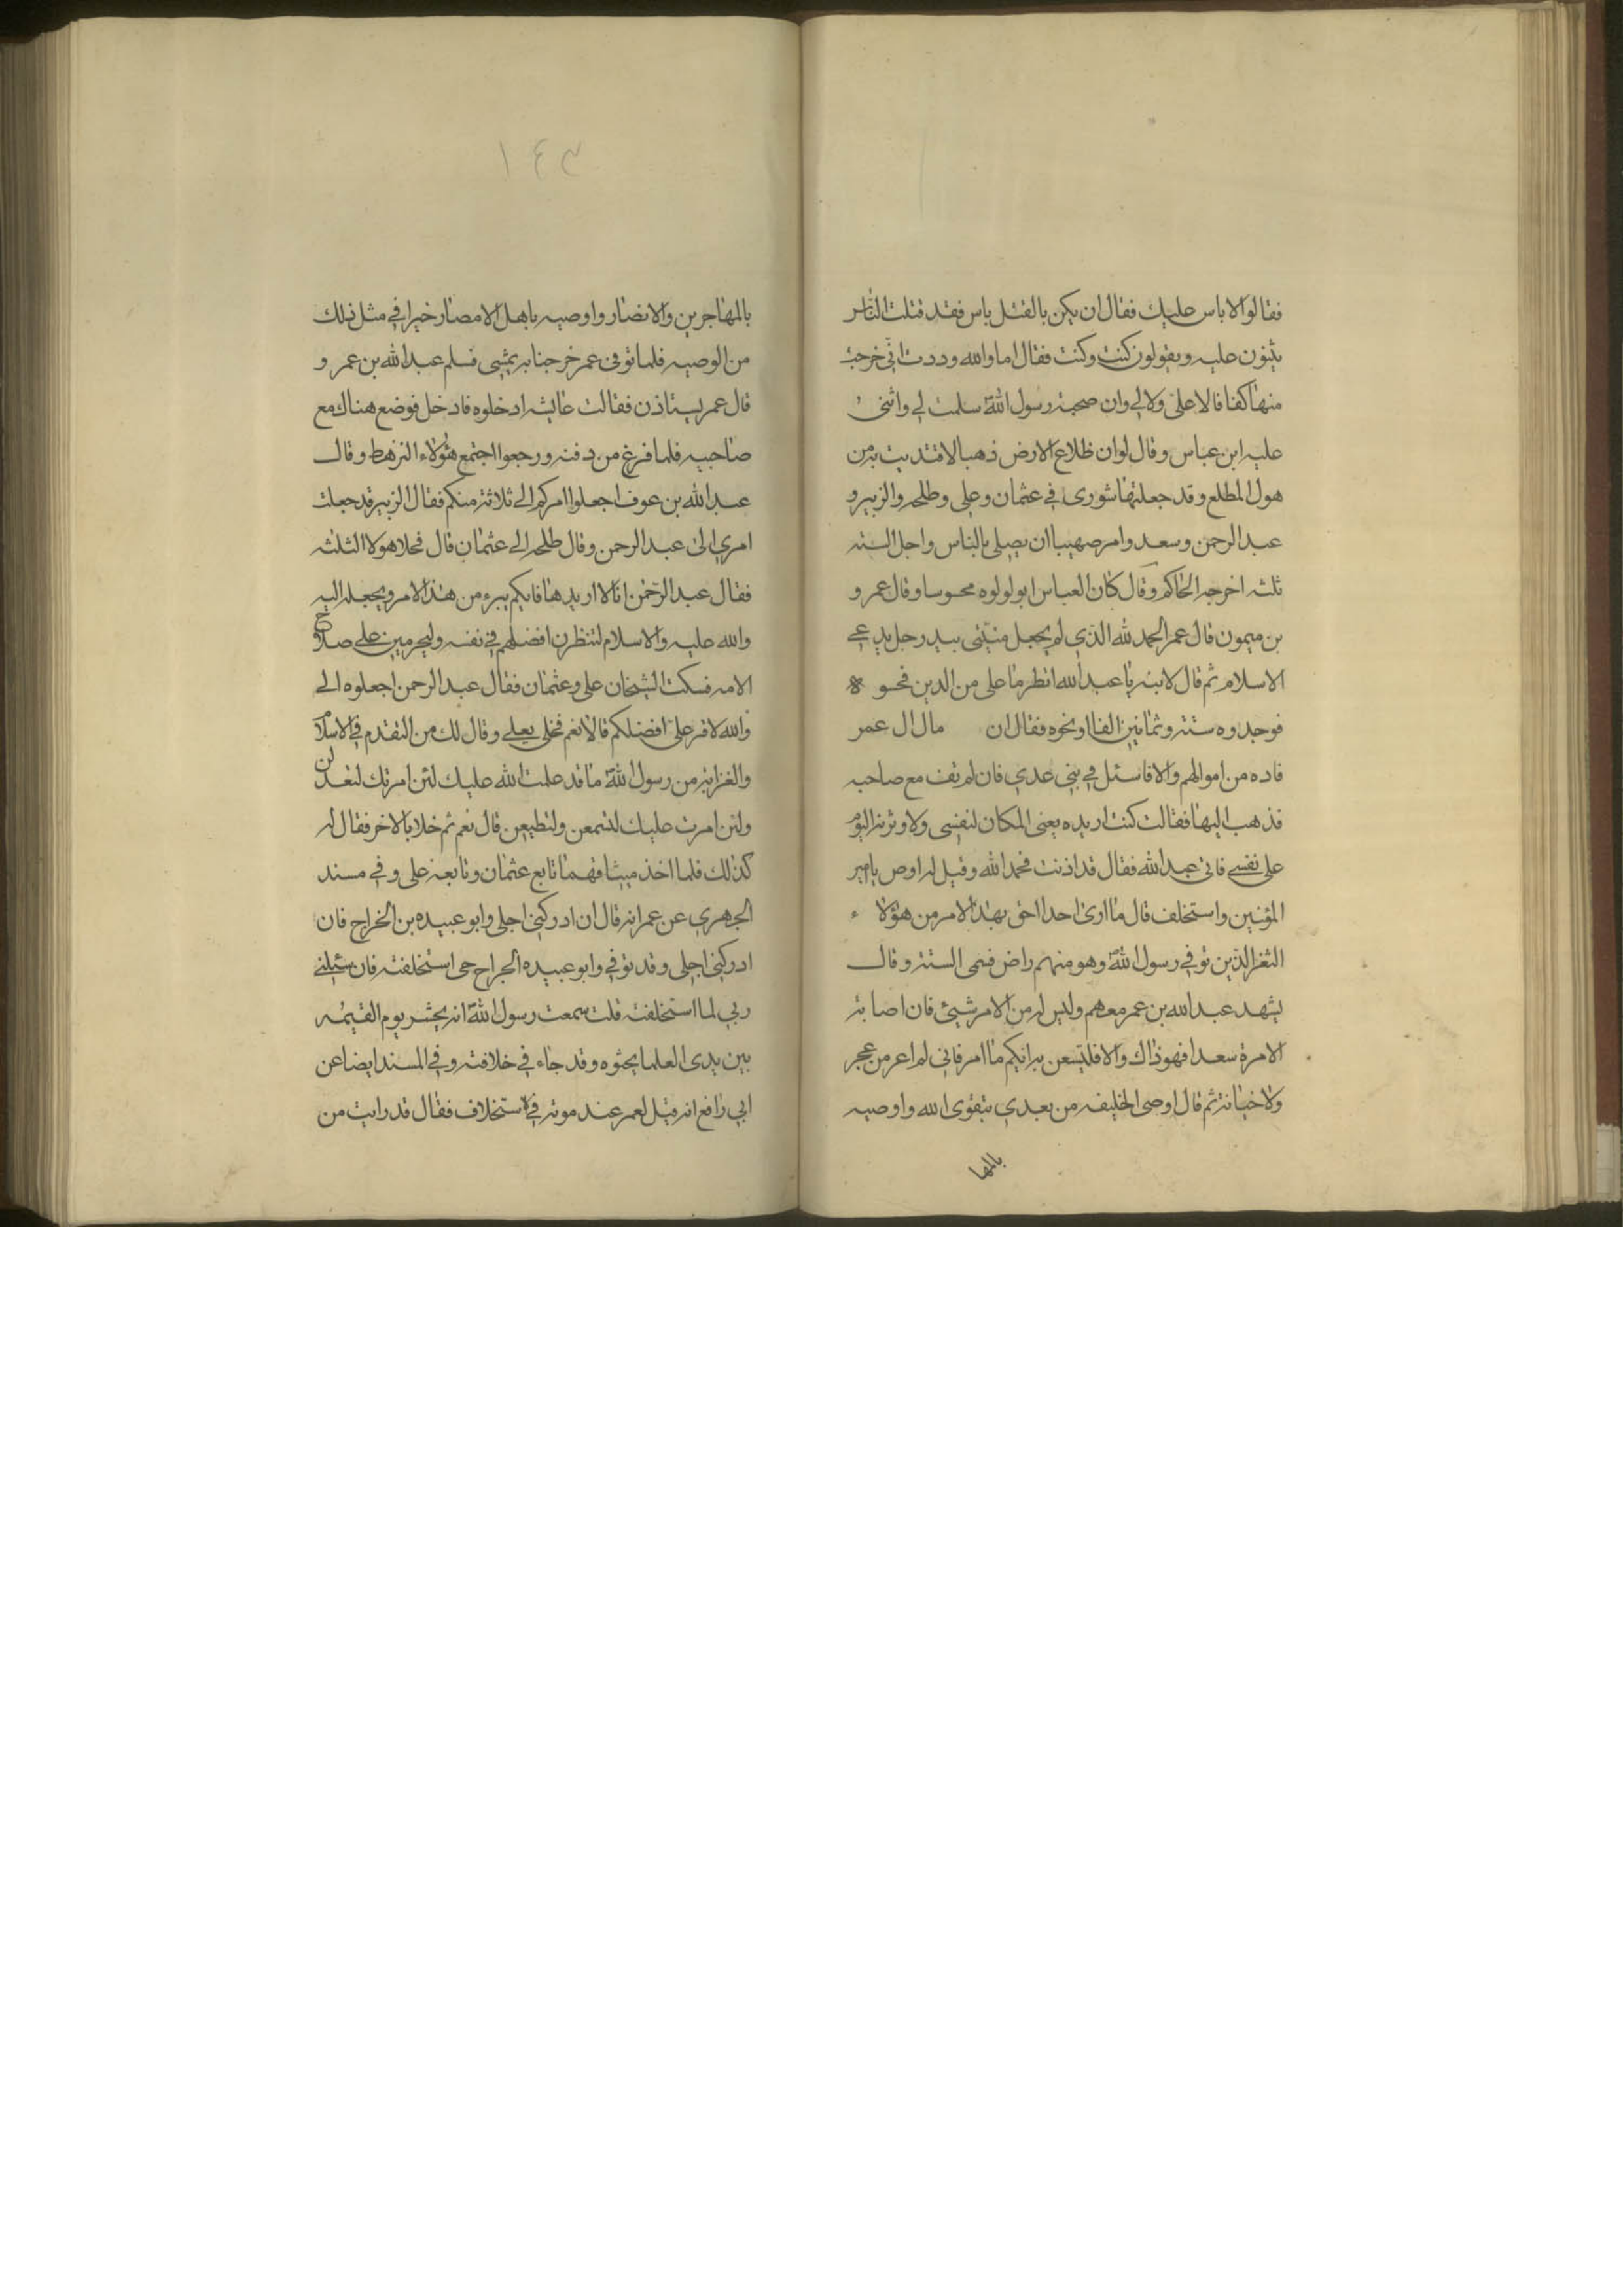 فقالوا لا باس عليك فقال ان يكن بالقتل باس فقد قتلت الناس
يثنون عليه ويقولون كنت وكنت فقال اما والله وددت انى خرجت
منها كفافا لا على ولا لي وان صحبة رسول الله سلمت لي واثنى
عليه ابن عباس وقال لو ان ظلاع الارض ذهبا لافتديت به من
هول المطلع وقد جعلتها شورى في عثمان وعلى وطلحه والزبير و
عبد الرحمن وسعد وامر صهيبا ان يصلى بالناس واجل السته
ثلثه اخرجه الحاكم وقال كان العباس ابو لولوه محوسا وقال عمر و
بن ميمون قال عمر الحمد لله الذي لم يجعل منيتى بيد رجل يدعي
الاسلام ثم قال لابنه يا عبد الله انظر ما على من الدين فحسو
فوجدوه ستة وثمانين الفا او نحوه فقال ان مال ال عمر
فاده من اموالهم والا فاسئل في بني عدي فان لم تف مع صاحبه
فذهب اليها فقالت كنت اريده يعنى المكان لنفسى ولاوثرنه اليوم
على نفسي فاتى عبد الله فقال قد اذنت فحمد الله وقيل له اوص يا امير
المؤنين واستخلف قال ما ارى احدا احق بهذا الامر من هؤلاء
النغر الذين توفي رسول الله وهو منهم راض فسمى الستة وقال
يشهد عبد الله بن عمر معهم وليس له من الامر شيئ فان اصابة
الامرة سعدا فهو ذاك والا فليتسعن به ايكم ما امر فانى لم اعر من عجر
ولا خيانة ثم قال اوصى الخليفه من بعدي بتقوى الله واوصيه
بالمها
١٤٣
بالمهاجرين والانضار واوصيه باهل الامصار خيرا في مثل ذلك
من الوصيه فلما توفى عمر خرجنا به يمشى فسلم عبد الله بن عمر و
قال عمر يستاذن فقالت عايشه ادخلوه فادخل فوضع هناك مع
صاحبيه فلما فرغ من دفنه ورجعوا اجتمع هؤلاء الرهط وقال
عبد الله بن عوف اجعلوا امركم الي ثلاثة منكم فقال الزبير قد جعلت
امري الى عبد الرحمن وقال طلحه الي عثمان قال فخلا هولا الثلثه
فقال عبد الرحمن انا لا اريدها فايكم يبرء من هذا الامر ويجعله اليه
والله عليه والاسلام لننظرن افضلهم في نفسه وليحرمين على صلاح
الامه فسكت الشيخان على وعثمان فقال عبد الرحمن اجعلوه الي
والله لا فر على افضلكم قالا نعم فخلى بعلي وقال لك من التقدم في الاسلام
والغزابة من رسول الله ما قد علمت الله عليك لئن امرتك لتعدلن
ولئن امرت عليك لتسمعن ولتطيعن قال نعم ثم خلا بالاخر فقال له
كذلك فلما اخذ ميثاقهما تابع عثمان وتابعه على وفي مسند
الجهري عن عمر انه قال ان ادركنى اجلى وابو عبيده بن الخراج فان
ادركنى اجلى وقد توفي وابو عبيده الجراح حى استخلفته فان سئلني
ربي لما استخلفته قلت سمعت رسول الله انه يحشر يوم القيمه
بين يدى العلما يحثوه وقد جاء في خلافته وفي المسند ايضا عن
ابي رافع انه قيل لعمر عند موته في الاستخلاف فقال قد رايت من